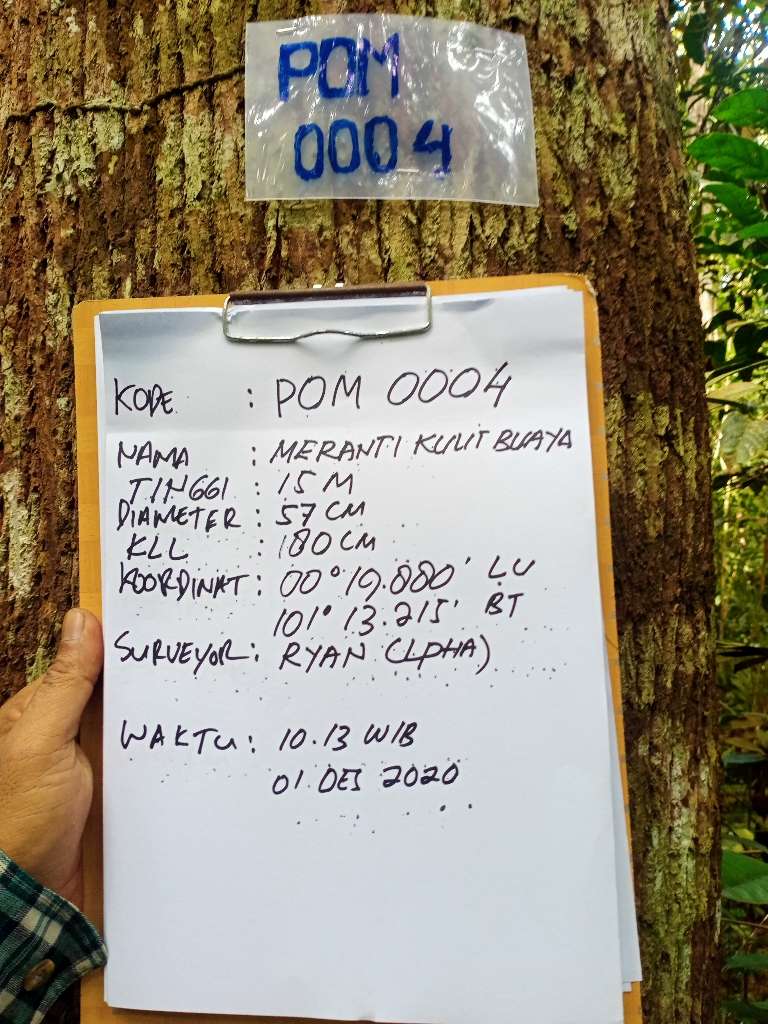 POM
0004
KODE : POM 0004
NAMA : MERANTI KULIT BUAYA
TINGGI : 15 M
DIAMETER : 57 CM
KLL : 180 CM
KOORDINAT : 00° 19.880' LU
101° 13.215' BT
SURVEYOR : RYAN (LPHA)
WAKTU : 10.13 WIB
01 DES 2020